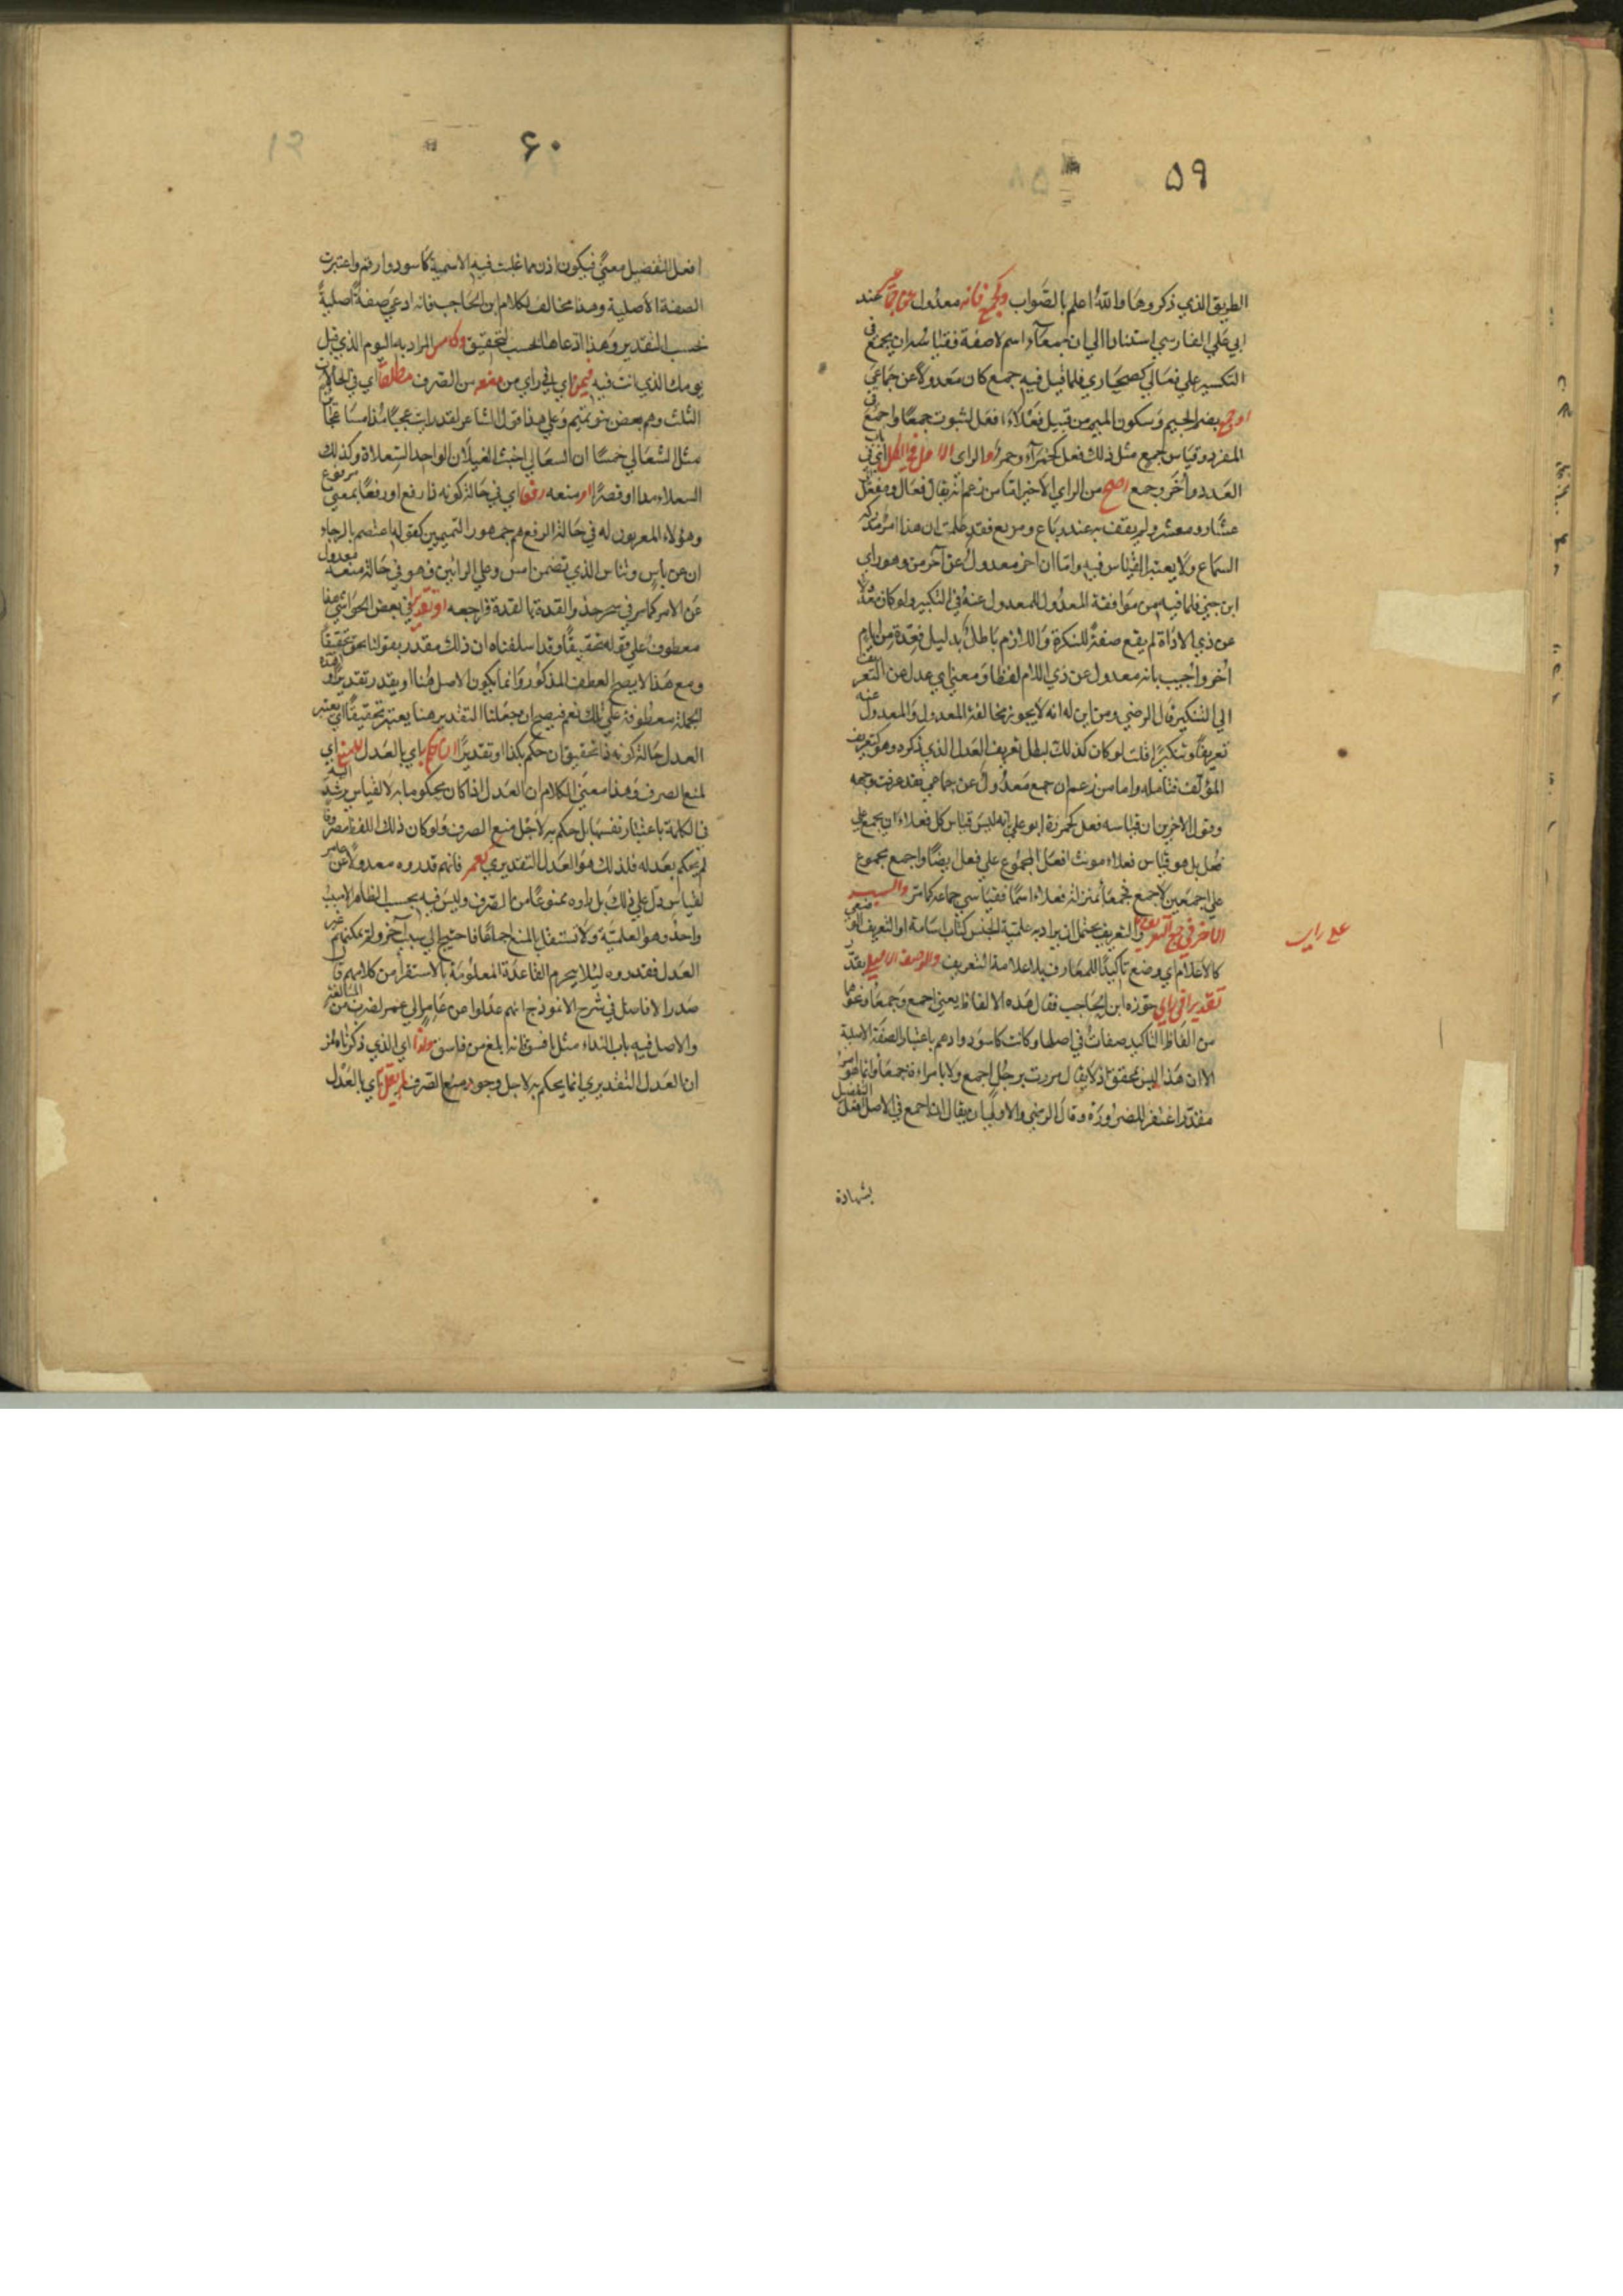 ٥٩
الطريق الذي ذكروها والله اعلم بالصواب وجمع فانه معدول عن جماعى عند
ابي علي الفارسي استنادا الي ان جمعآء اسم لاصفة فقياسه ان يجمع في
التكسير علي فعالي كصحاري فلما قيل فيه جمع كان معدولا عن جماعي
او جمع بضم الجيم وسكون الميم من قبيل فعلاء افعل لثبوت جمعا واجمع في
المفرد وقياس جمع مثل ذلك فعل كحمرآء وحمر والراى الاول في
العدد وأخر وجمع اصح من الراي الاخير اما من زعم انه يقال فعال ومفعل
عشار ومعشر ولم يقف به عند رباع ومربع فقد علمت ان هذا امر مدركه
السماع ولا يعتبر القياس فيه واما ان اخر معدول عن آخر من وهو راي
ابن جني فلما فيه من موافقة المعدول للمعدول عنه في التكبير ولو كان معدولا
عن ذي الاداة لم يقع صفة للنكرة واللازم باطل بدليل فعدة من ايام
أخر واجيب بانه معدول عن ذي اللام لفظا ومعني اي عدل عن التعريف
الي التنكير قال الرضي ومن اين له انه لا يجوز مخالفة المعدول والمعدول عنه
تعريفا وتنكيرا قلت لو كان كذلك لبطل تعريف العدل الذي ذكره وهو تعريف
المؤلف فتامله واما من زعم ان جمع معدول عن جماعي فقد عرفت وجهه
وقول الاخرين ان قياسه فعل كحمر رده ابو علي بانه ليس قياس كل فعلاء ان يجمع علي
فعل بل هو قياس فعلاء مونث افعل المجموع علي فعل ايضا واجمع مجموع
علي اجمعين لا جمع فجمعا بمنزلة فعلاء اسما فقياسي جماعه كما مر والسبب
الآخر في جمع التعريف والتعريف يحتمل ان يراد به علمية الجنس كباب اسامة او التعريف الوضعي
كالاعلام اي وضع تاكيدا للمعارف بلا علامة التعريف والوصف الاصلي بقدر
تقديرا في راي جوزه ابن الحاجب فقال هذه الالفاظ يعني اجمع وجمعا ونحوهما
من الفاظ التاكيد صفات في اصلها وكانت كاسود وادهم باعتبار الصفة الاصلية
الا ان هذا ليس محقق اذ لا يقال مررت برجل اجمع ولا بامراءة جمعا وانما هو امر
مقدر اغتفر للضرورة وقال الرضي والاولي ان يقال ان اجمع في الاصل افعل التفضيل
بشهادة
على راى
٦٠
افعل التفضيل معني فيكون اذن مما غلبت فيه الاسمية كاسود وارقم واعتبرت
الصفة الاصلية وهذا مخالف لكلام ابن الحاجب فانه ادعي صفة اصلية
بحسب التقدير وهذا ادعاها بحسب التحقيق وكامس المراد به اليوم الذي قبل
يومك الذي انت فيه فيمن اي في راي من منعه من الصرف مطلقا اي في الحالات
الثلث وهم بعض بنو تميم وعلي هذا قول الشاعر لقد رايت عجبا مذ امسا عجائزا
مثل السعالي خمسا ان السعالي اخبث الغيلان الواحد السعلاة وكذلك
السعلاء مدا وقصرا او منعه رفعا اي في حالة كونه ذا رفع اورفعا بمعني مرفوع
وهؤلاء المعربون له في حالة الرفع هم جمهور التميمين كقوله اعتصم بالرجاء
ان عن باس وتناس الذي تضمن امس وعلي الرائين فهو في حالة منعه معدول
عن الامس كما مر في سحر حذو القدة بالقدة فراجعه او تقديرا في بعض الحواشي هذا
معطوف علي قوله تحقيقا وقد اسلفناه ان ذلك مقدر بقولنا بحق تحقيقا
ومع هذا لا يصح العطف المذكور وانما يكون الاصل هنا او يقدر تقديرا وهذه
الجملة معطوفة علي تلك نعم فيصح ان جعلنا التقدير هنا يعتبر تحقيقا اي يعتبر
العدل حالة كونه ذا تحقيق ان حكم بكذا او تقديرا ان حكم به اي بالعدل للمنع اي
لمنع الصرف وهذا معني الكلام ان العدل اذا كان يحكوما به لا لقياس يرشد اليه
في الكلمة باعتبار نفسها بل حكم به لاجل منع الصرف ولو كان ذلك اللفظ مصروفا
لم يحكم بعدله فلذلك هو العدل التقديري كعمر فانهم قدروه معدولا عن عامر
لقياس دل علي ذلك بل راوه ممنوعا من الصرف وليس فيه بحسب الظاهر الا سبب
واحد وهو العلمية ولا تستقل بالمنع اجماعا فاحتيج الي سبب آخر ولم يمكنهم غير
العدل فقدروه ليلا يحرم القاعدة المعلومة بالاستقرا من كلامهم قال
صدر الافاصل في شرح الانموذج انهم عدلوا عن عامر الي عمر لضرب من المبالغة
والاصل فيه باب النداء مثل يا فسق فانه ابلغ من فاسق ولذا اي الذي ذكرناه من
ان العدل التقديري انما يحكم به لاجل وجود منع الصرف لم يقل به اي بالعدل